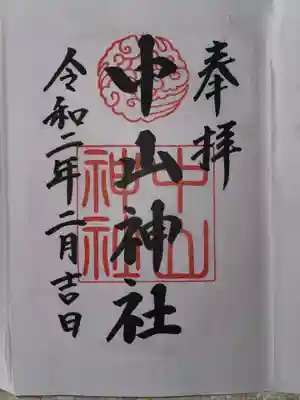 奉拝
中山神社
中山
神社
令和二年二月吉日